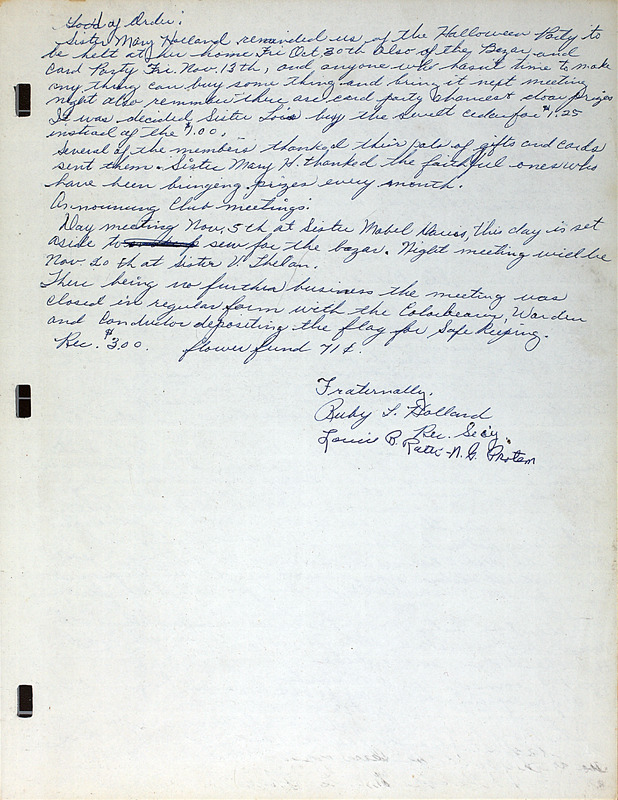 Good of Order:
Sister Mary Holland reminded us of the Halloween Party to
be helt at her home Fri Oct 30th also of the Bazar and
Card Party Fri. Nov. 13th, and anyone who hasn't time to make
any thing can buy some thing and bring it next meeting
night also remember there are card party chances & door prizes
It was decided Sister buy the cedar for $1.25
instead of the $1.00.
Several of the members thanked their pals of gifts and cards
sent them. Sister Mary H. thanked the faithful ones who
have been bringeng prizes every month.
Announcing Club meetings:
Day meeting Nov. 5th at Sister Mabel this day is set
aside to sew for the bazar. Night meeting will be
Nov. 20th at Sister V. Thelan.
There being no further business the meeting was
closed in regular form with the Colorbearer, Warden
and Conductor depositing the flag for Safe Keeping.
Rec. $3.00. flower fund 71¢.
Fraternally,
Ruby L. Holland
Rec. Secy.
B. N.G. Protem